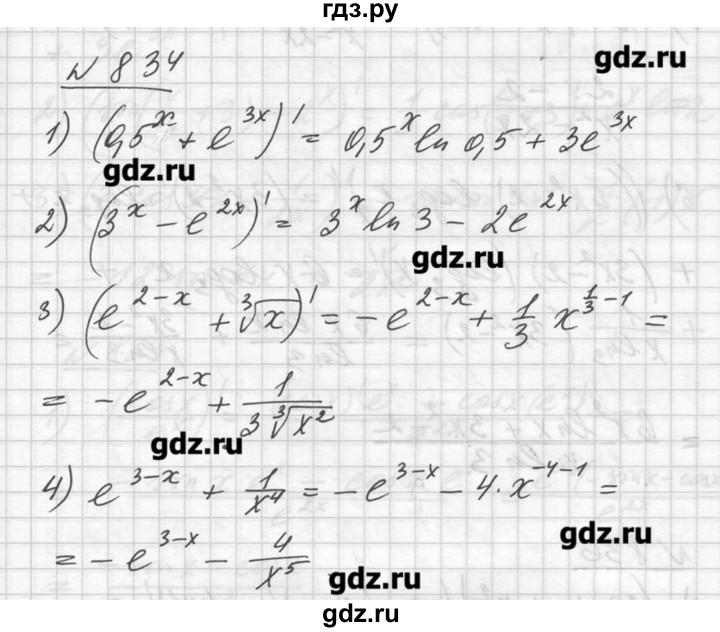 гдз.ру
№ 834
gdz.ru
1) (0,5^x + e^{3x})' = 0,5^x ln 0,5 + 3e^{3x}
gdz.ru
2) (3^x − e^{2x})' = 3^x ln 3 − 2e^{2x}
gdz.ru
3) (e^{2−x} + ∛x)' = −e^{2−x} + 1/3 x^{1/3−1} =
= −e^{2−x} + 1/(3∛(x^2))
gdz.ru
4) e^{3−x} + 1/x^4 = −e^{3−x} − 4·x^{−4−1} =
gdz.ru
= −e^{3−x} − 4/x^5
gdz.ru
gdz.ru